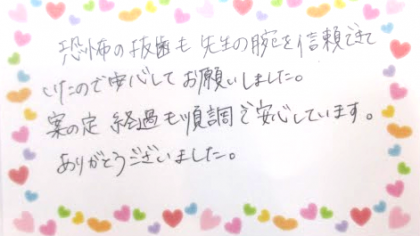 恐怖の抜歯も先生の腕を信頼できて
いたので安心してお願いしました。
案の定 経過も順調で安心しています。
ありがとうございました。